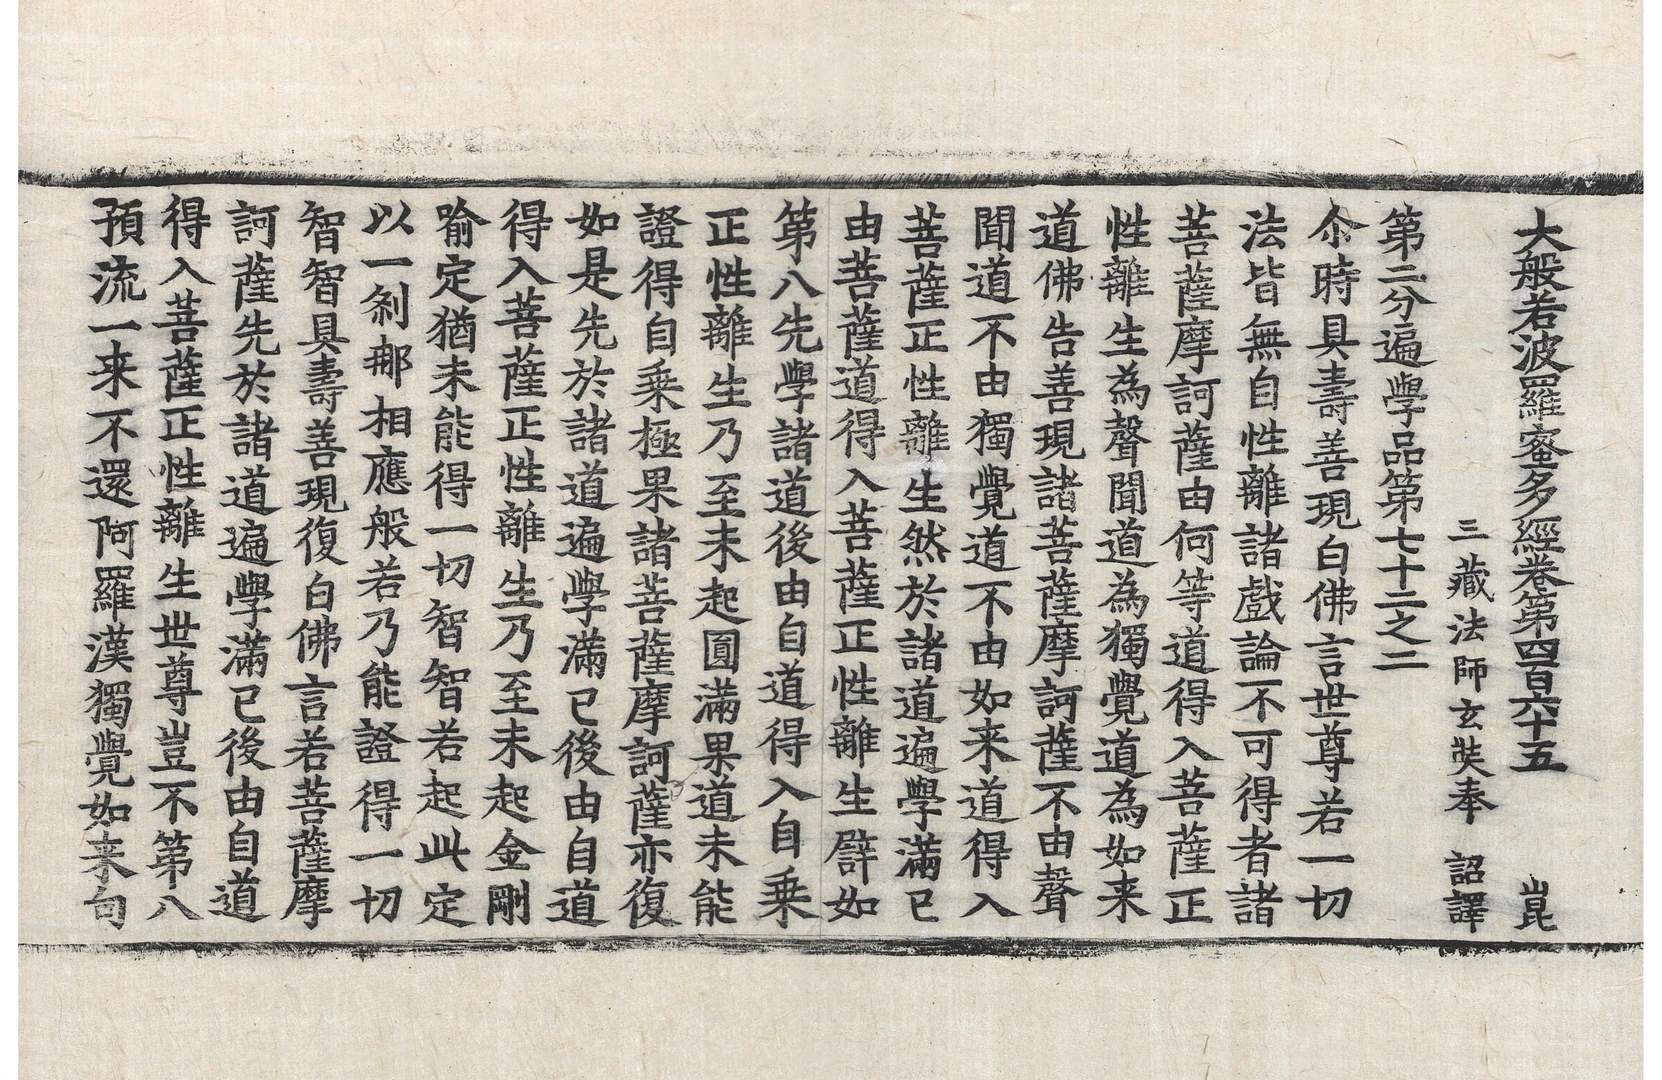 大般若波羅蜜多經卷第四百六十五　崑
三藏法師玄奘奉　詔譯
第二分遍學品第七十二之二
尒時具壽善現白佛言世尊若一切
法皆無自性離諸戲論不可得者諸
菩薩摩訶薩由何等道得入菩薩正
性離生為聲聞道為獨覺道為如来
道佛告善現諸菩薩摩訶薩不由聲
聞道不由獨覺道不由如来道得入
菩薩正性離生然於諸道遍學滿已
由菩薩道得入菩薩正性離生譬如
第八先學諸道後由自道得入自乗
正性離生乃至未起圓滿果道未能
證得自乗極果諸菩薩摩訶薩亦復
如是先於諸道遍學滿已後由自道
得入菩薩正性離生乃至未起金剛
喻定猶未能得一切智智若起此定
以一剎那相應般若乃能證得一切
智智具壽善現復白佛言若菩薩摩
訶薩先於諸道遍學滿已後由自道
得入菩薩正性離生世尊豈不第八
預流一来不還阿羅漢獨覺如来向